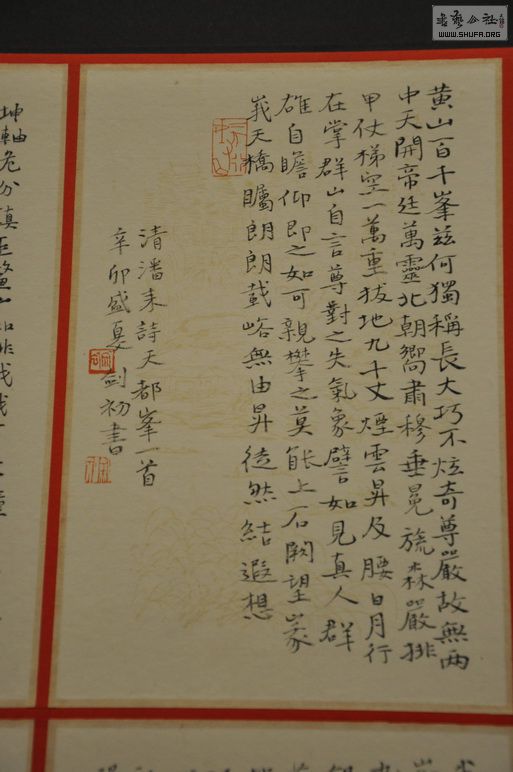 黄山百千峯兹何獨稱長大巧不炫奇尊嚴故無两
中天開帝廷萬靈北朝嚮肅穆垂冕旒森嚴排
甲仗梯空一萬重拔地九十丈煙雲昇及腰日月行
在掌群山自言尊對之失氣象譬如見真人群
雄自瞻仰即之如可親攀之莫能上石闕望嵳
峩天橋矚朗朗戟峪無由昇徒然結遐想
清潘耒詩天都峯一首
辛卯盛夏劍初書
坤軸危分鎮巨鼇
書藝公社
WWW.SHUFA.ORG